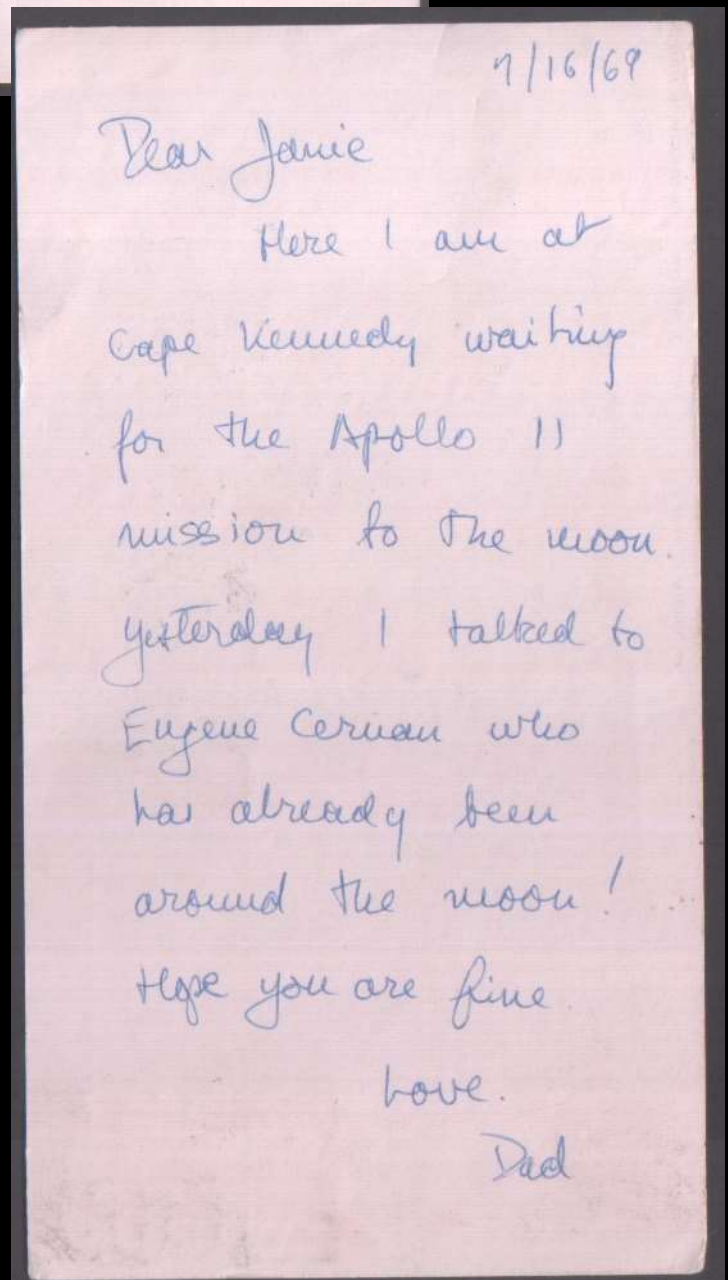 7/16/69
Dear Janie
Here I am at
Cape Kennedy waiting
for the Apollo 11
mission to the moon.
yesterday I talked to
Eugene Cernan who
has already been
around the moon!
Hope you are fine.
Love.
Dad